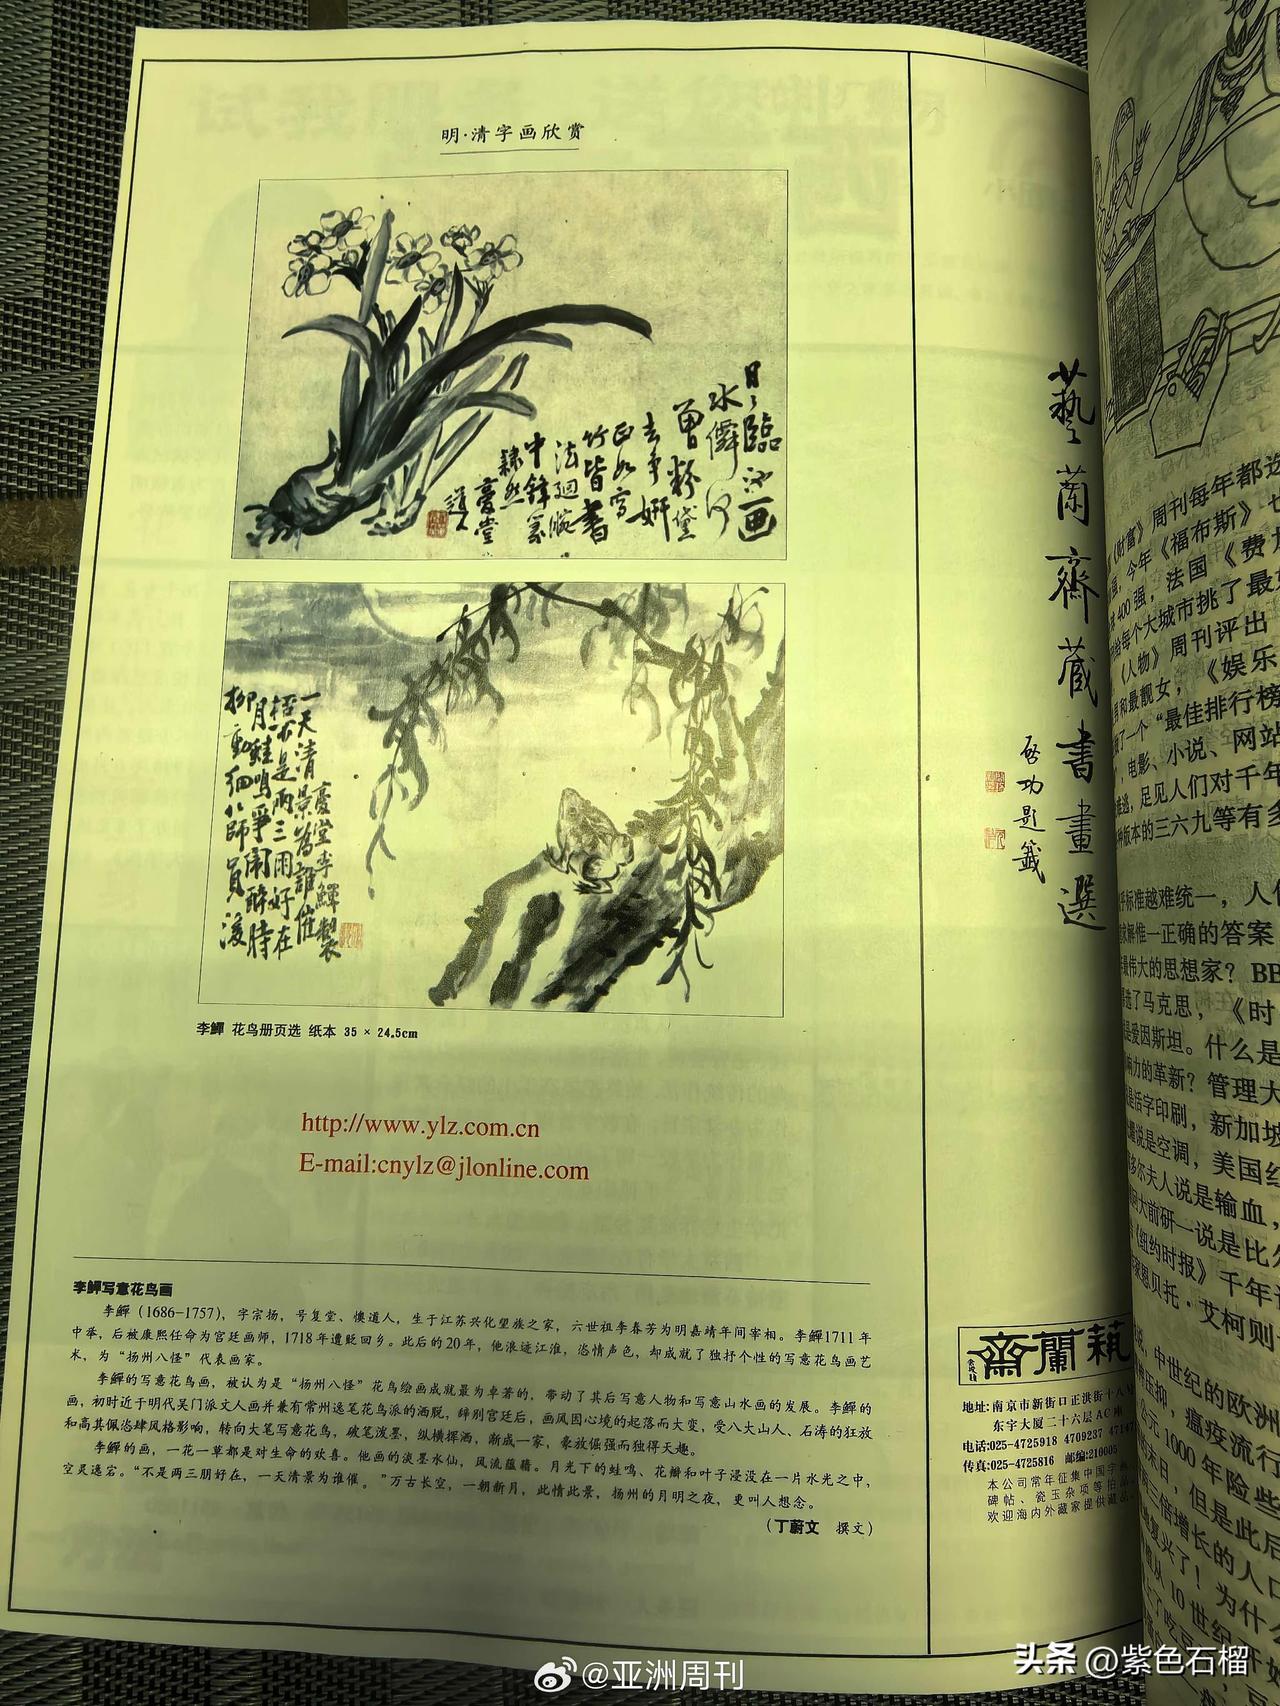 明·清字画欣赏
日日臨池画
水僊何
曾粉黛
去争妍
正如写
竹皆書
法迴腕
中鋒篆
隸然
懊堂
道人
復堂李鱓製
一天清景為誰催
梧亦是兩三朋好在
月蛙鳴爭鬧醉時
柳動細
李鱓 花鸟册页选 纸本 35 × 24.5cm
http://www.ylz.com.cn
E-mail:cnylz@jlonline.com
李鱓写意花鸟画
李鱓（1686-1757），字宗扬，号复堂、懊道人，生于江苏兴化望族之家，六世祖李春芳为明嘉靖年间宰相。李鱓1711年
中举，后被康熙任命为宫廷画师，1718年遭贬回乡。此后的20年，他浪迹江淮，恣情声色，却成就了独抒个性的写意花鸟画艺
术，为“扬州八怪”代表画家。
李鱓的写意花鸟画，被认为是“扬州八怪”花鸟绘画成就最为卓著的，带动了其后写意人物和写意山水画的发展。李鱓的
画，初时近于明代吴门派文人画并兼有常州逸笔花鸟派的洒脱，辞别宫廷后，画风因心境的起落而大变，受八大山人、石涛的狂放
和高其佩恣肆风格影响，转向大笔写意花鸟，破笔泼墨，纵横挥洒，渐成一家，豪放倔强而独得天趣。
李鱓的画，一花一草都是对生命的欢喜。他画的淡墨水仙，风流蕴藉。月光下的蛙鸣、花瓣和叶子浸没在一片水光之中，
空灵逸宕。“不是两三朋好在，一天清景为谁催。”万古长空，一朝新月，此情此景，扬州的月明之夜，更叫人想念。
（丁蔚文 撰文）
藝蘭齋藏書畫選
启功题籤
藝蘭齋
地址:南京市新街口正洪街十八号
东宇大厦二十六层AC座
电话:025-4725918 4709237 47147
传真:025-4725816 邮编:210005
本公司常年征集中国字画
碑帖、瓷玉杂项等拍品
欢迎海内外藏家提供藏品
《财富》周刊每年都选
强，今年《福布斯》七
400强，法国《费加
给每个大城市挑了最
《人物》周刊评出
和最靓女，《娱乐
了一个“最佳排行榜
，电影、小说、网站
难逃，足见人们对千年
种版本的三六九等有多
标准越难统一，人们
求解惟一正确的答案
最伟大的思想家？BB
选了马克思，《时
是爱因斯坦。什么是
响力的革新？管理大
是活字印刷，新加坡
说是空调，美国红
多尔夫人说是输血，
大前研一说是比尔
《纽约时报》千年
恩贝托·艾柯则
，中世纪的欧洲
压抑，瘟疫流行
公元1000年险些
末日，但是此后
三倍增长的人口
复兴了！为什么
从10世纪开始
@亚洲周刊
头条 @紫色石榴